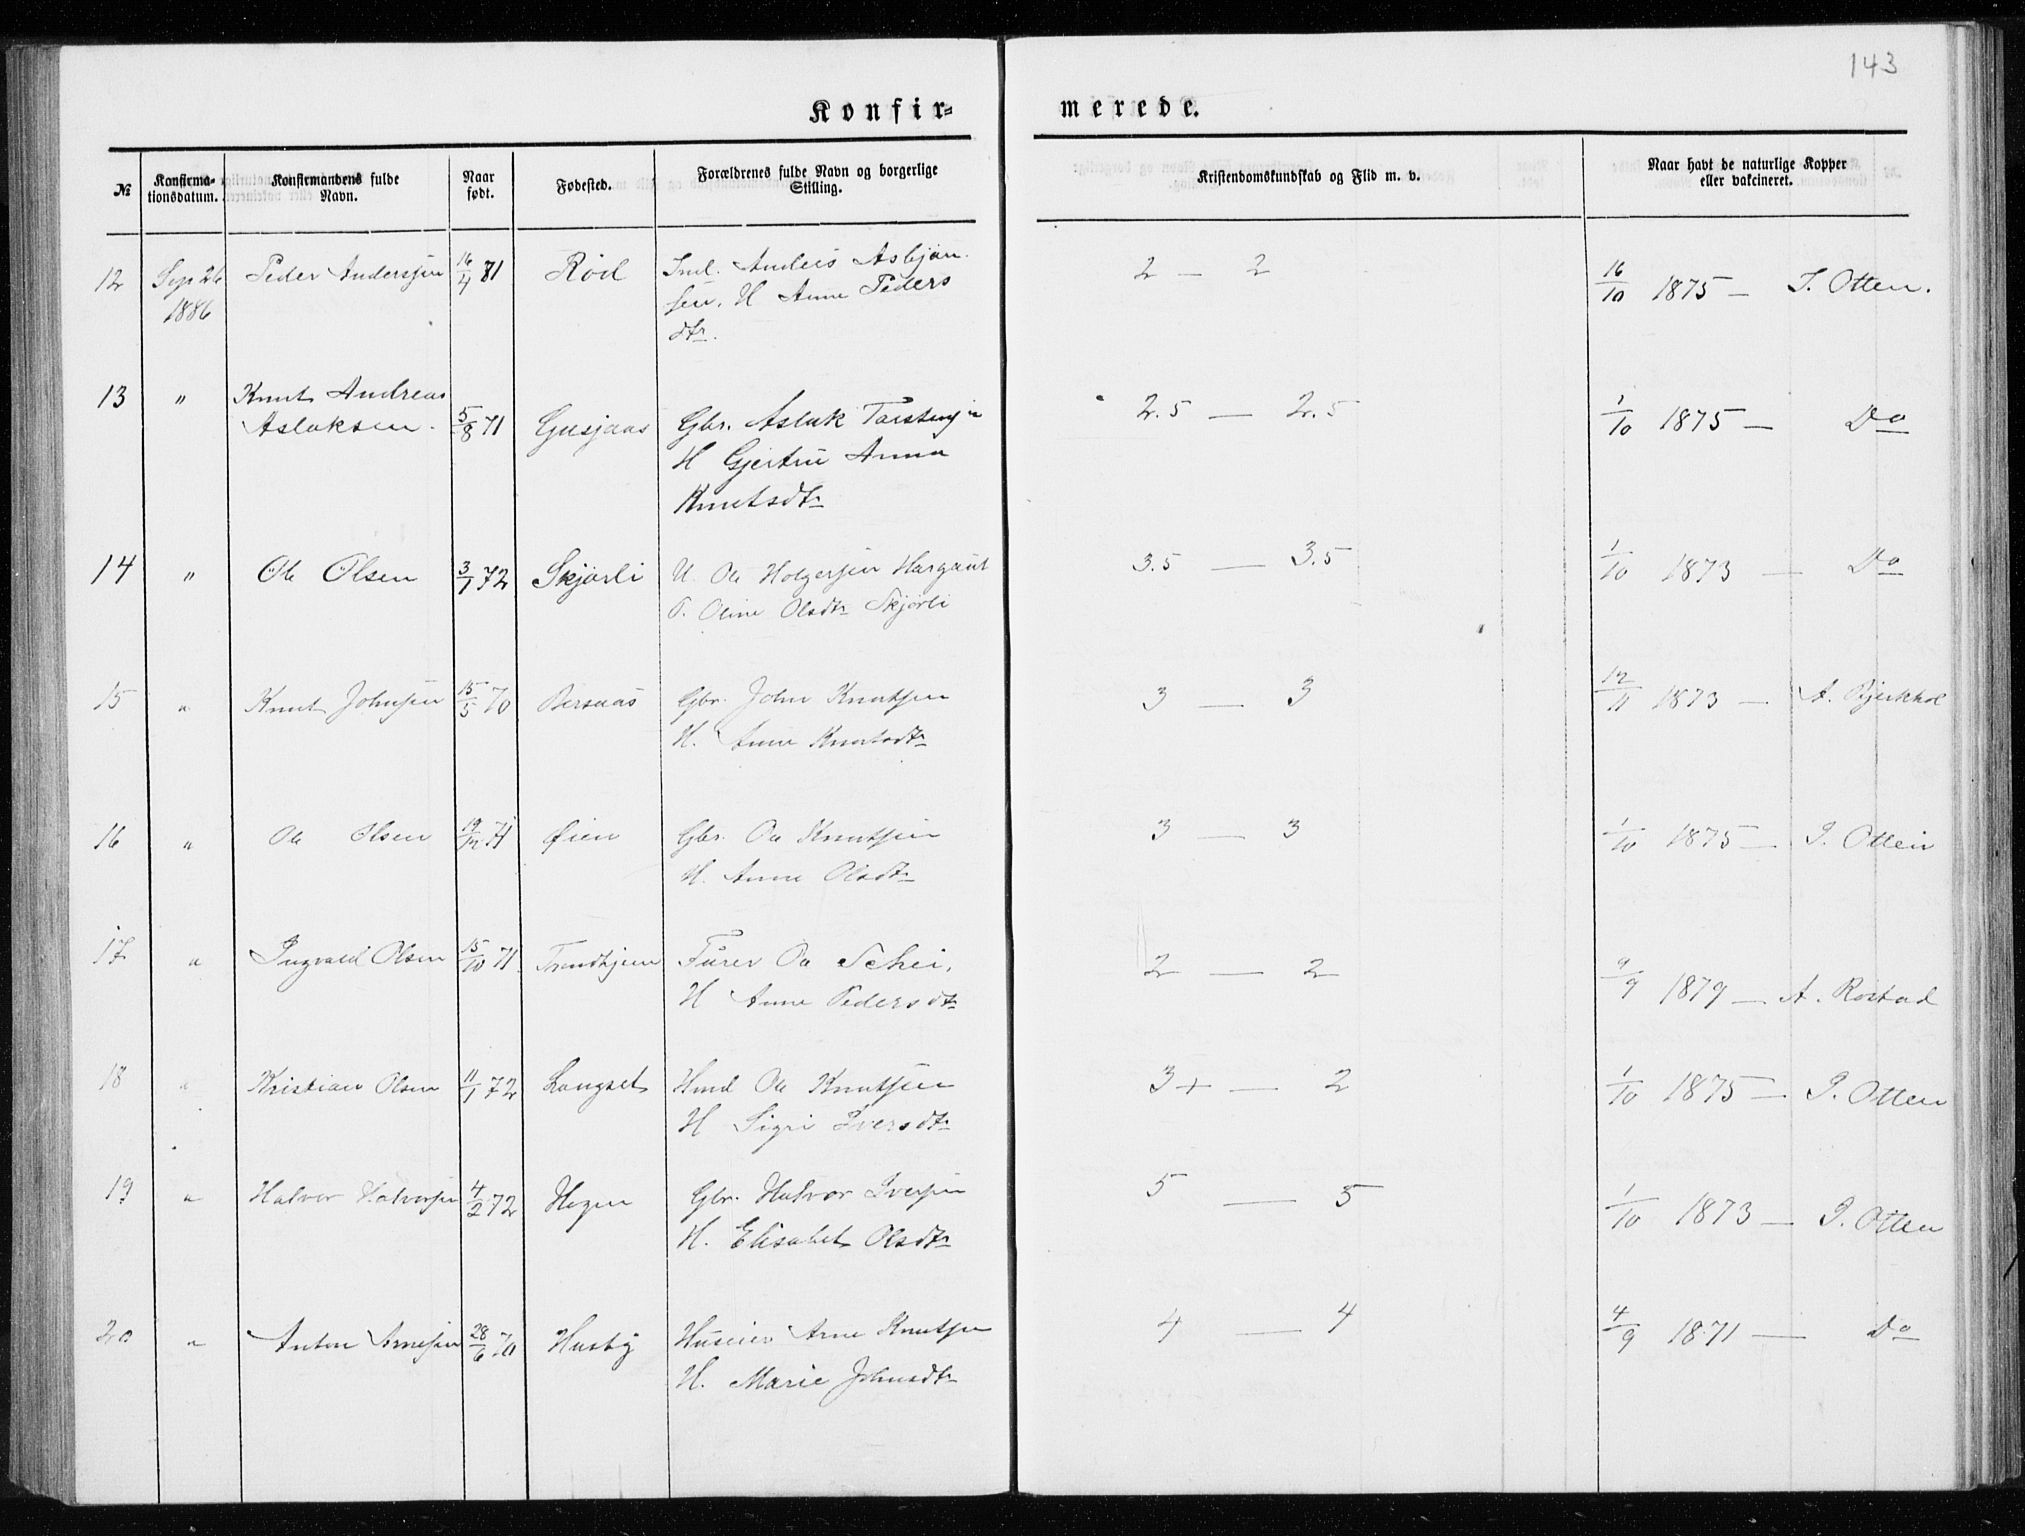 143
Konfir- merede.
№ Konfirma-tionsdatum. Konfirmandens fulde Navn. Naar født. Fødested. Forældrenes fulde Navn og borgerlige Stilling. Kristendomskundskab og Flid m. v. Naar havt de naturlige Kopper eller vakcineret.
12 Sep 26 Peder Anderssen 16/4 81 Rød Ind. Anders Asbjøn- 2 — 2 16/10 1875 — I. Otten.
1886 sen. H Anne Peders
dtr.
13 " Knut Andreas
Aslaksen. 5/8 71 Gusjaas Gbr. Aslak Torstensen 2.5 — 2.5 1/10 1875 — Do
H Gjertru Anna
Knutsdtr
14 " Ole Olsen 3/1 72 Skjørli U. Ole Holgersen Hargaut 3.5 — 3.5 1/10 1873 — Do
P. Oline Olsdtr Skjørli
15 " Knut Johnsen 15/5 70 Bersaas Gbr. John Knutsen 3 — 3 12/11 1873 — A. Bjerkhol
H. Anne Knutsdtr
16 " Ole Olsen 19/12 71 Øien Gbr. Ole Knutsen 3 — 3 1/10 1875 — I. Otten
H. Anne Olsdtr
17 " Ingvald Olsen 15/10 71 Trondhjem Furer Ole Schei, 2 — 2 9/9 1879 — A. Rostad
H Anne Pedersdtr
18 " Kristian Olsen 11/1 72 Langset Hmd Ole Knutsen 3+ — 2 1/10 1875 — I. Otten
H Sigri Iversdtr
19 " Halvor Halvorsen 4/2 72 Hagen Gbr. Halvor Iversen 5 — 5 1/10 1873 — I. Otten
H. Elisabet Olsdtr
20 " Anton Arnesen 28/6 70 Husby Huseier Arne Knutsen 4 — 4 4/9 1871 — Do
H. Marie Johnsdtr